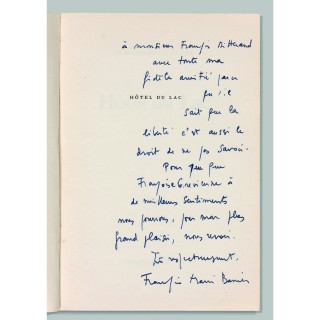 à monsieur François Mitterand
avec toute ma
fidèle amitié parce
qu'il
HÔTEL DU LAC
sait que la
liberté c'est aussi le
droit de ne pas savoir.
Pour que
Françoise Grevienne à
de meilleurs sentiments
nous pouvons, pour mon plus
grand plaisir, nous revoir.
Très respectueusement.
François Marie Banier